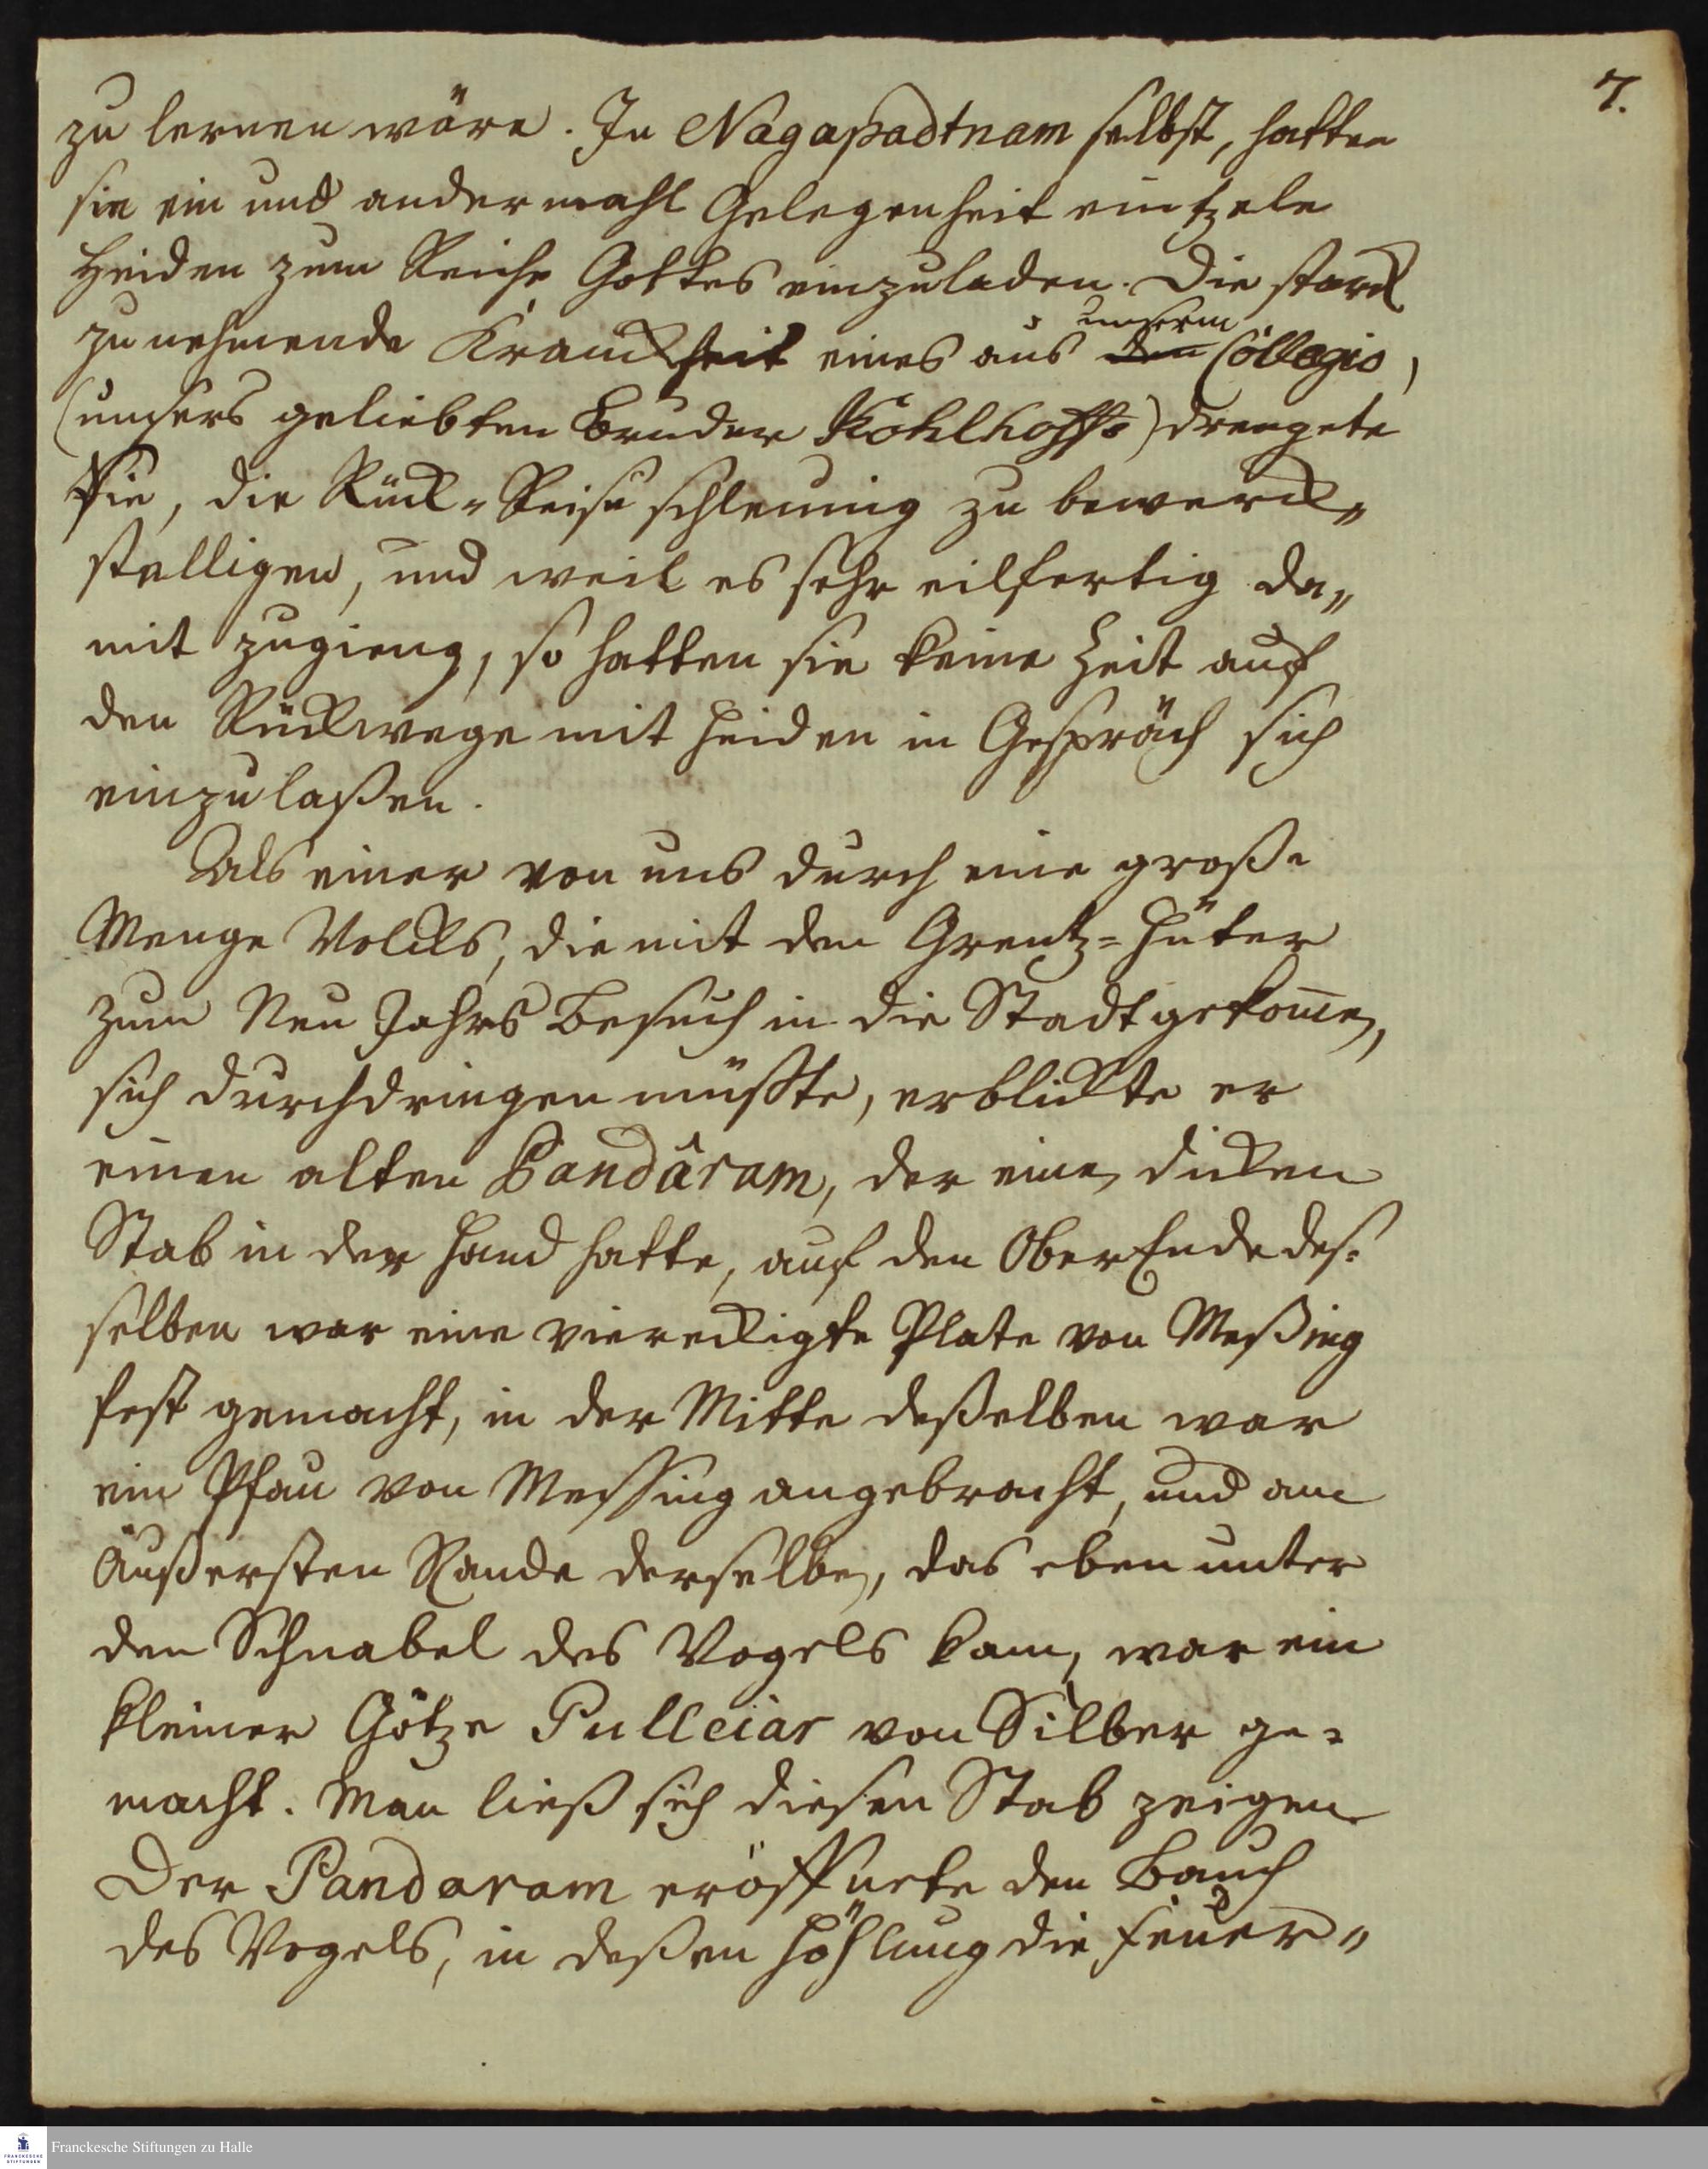 7.
zu lernen wäre. In Nagapadtnam selbst, hatten
sie ein und andermahl Gelegenheit eintzele
Heiden zum Reiche Gottes einzuladen. Die starck
zunehmende Kranckheit eines aus den unserm Collegio,
(unsers geliebten Bruder Kohlhoffs) drengete
Sie, die Rück-Reise schleunig zu bewerck„
stelligen, und weil es sehr eilfertig da„
mit zugieng, so hatten sie keine Zeit auf
den Rückwege mit Heiden in Gespräch sich
einzulaßen.
Als einer von uns durch eine große
Menge Volcks, die mit den Grentz=Hüter
zum Neu Jahrs Besuch in die Stadt gekom̄en,
sich durchdringen müßte, erblickte er
einen alten Pandâram, der einen dicken
Stab in der Hand hatte, auf den Ober Ende des=
selben war eine viereckigte Plate von Meßing
fest gemacht, in der Mitte deßelben war
ein Pfau von Messing angebracht, und am
äußersten Rande derselben, das eben unter
den Schnabel des Vogels kam, war ein
kleiner Götze Pulleiar von Silber ge=
macht. Man ließ sich diesen Stab zeigen
Der Pandaram eröffnete den Bauch
des Vogels, in deßen Höhlung die Feuer„
Franckesche Stiftungen zu Halle